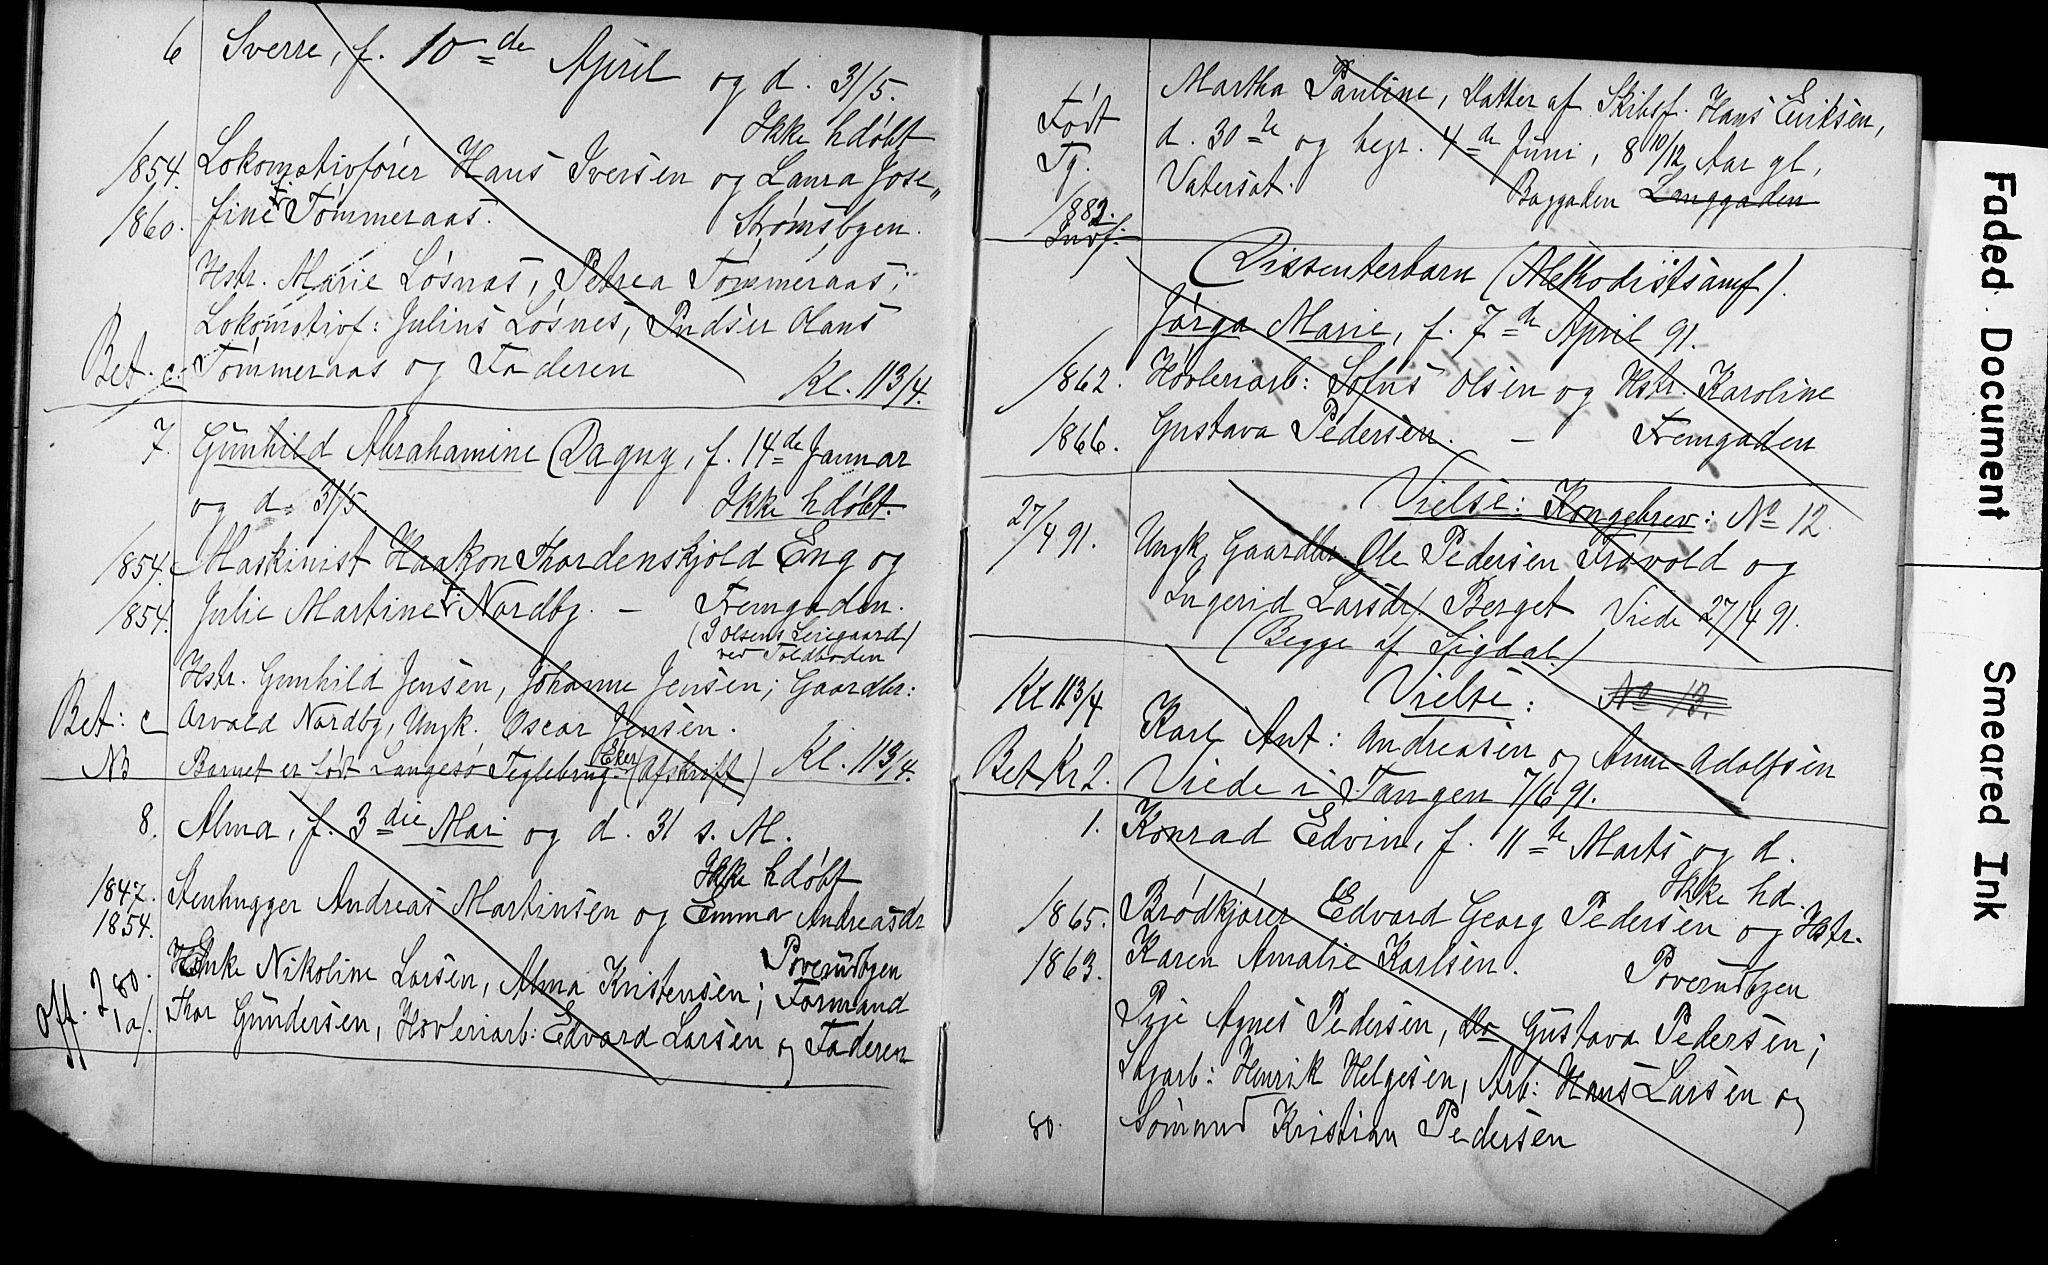 6 Sverre, f. 10de April og d. 31/5.
Ikke hdøbt
1854. Lokomotivfører Hans Iversen og Laura Jose„
1860. fine f. Tømmeraas. Strømsbyen.
Hstr. Marie Løsnæs, Petrea Tømmeraas;
Lokomotivf: Julius Løsnes, Pudser Olaus
Bet. c: Tømmeraas og Faderen Kl. 11 3/4.
7. Gunhild Abrahamine Dagny, f. 14de Januar
og d. 31/5. Ikke hdøbt.
1854. Maskinist Haakon Thordenskjold Eng og
1854. Julie Martine f. Nordby. – Fremgaden.
(I Olsens Leiegaard)
ved Toldboden
Hstr. Gunhild Jensen, Johanne Jensen; Gaardbr:
Bet: c Arvald Nordby, Ungk. Oscar Jensen.
NB Barnet er født Langesø Teglebrug. Eker (Afskrift) Kl. 11 3/4.
8. Alma, f. 3die Mai og d. 31 s. M.
Ikke hdøbt
1847. Stenhugger Andreas Martinsen og Emma Andreasdr
1854. Poverudbyen
Enke Nikoline Larsen, Alma Kristensen; Formand
Off. 2 80. Thor Gundersen, Høvleriarb: Edvard Larsen og Faderen
1 a/.
Født Martha Pauline, Datter af Skibsf. Hans Eriksen,
Tg. d. 30te og begr. 4de Juni, 8 10/12 Aar gl,
1882. Vatersot. Baggaden Langgaden
Indf:
Dissenterbarn (Methodistsamf).
Jørga Marie, f. 7de April 91.
1862. Høvleriarb: Sofus Olsen og Hstr. Karoline
1866. Gustava Pedersen. – Fremgaden
Vielse: Kongebrev: No 12
27/4 91. Ungk. Gaardbr Ole Pedersen Frøvold og
Ingerid Larsdr Berget Viede 27/4 91.
(Begge af Sigdal)
Kl 11 3/4 Vielse: No 13.
Karl Ant: Andreasen og Anna Adolfsen
Bet Kr 2. Viede i Tangen 7/6 91.
1. Konrad Edvin, f. 11te Marts og d.
Ikke hd.
1865. Brødkjører Edvard Georg Pedersen og Hstr.
1863. Karen Amalie Karlsen. Poverudbyen
Pige Agnes Pedersen, do Gustava Pedersen;
Sagarb: Henrik Helgesen, Arb: Hans Larsen og
80. Sømand Kristian Pedersen
Faded Document
Smeared Ink